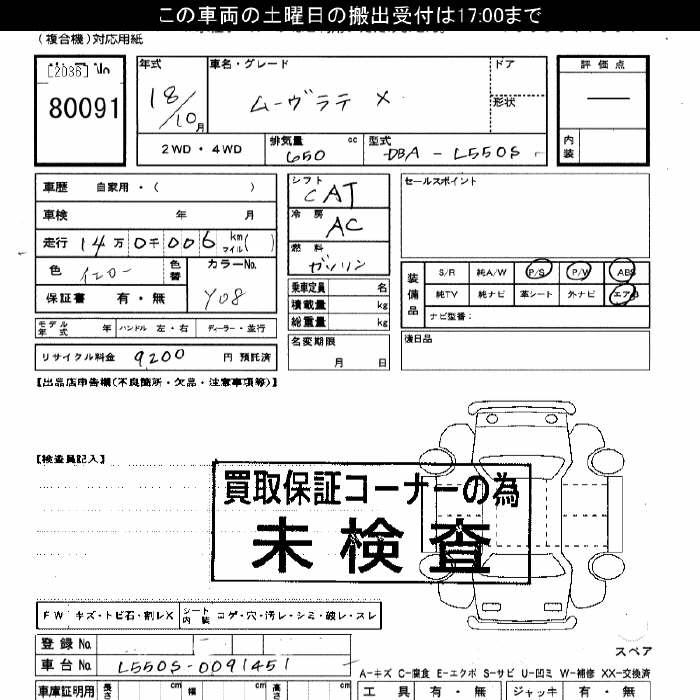 この車両の土曜日の搬出受付は17:00まで
(複合機)対応用紙
[2036] No
80091
年式 18/10月
車名・グレード ムーヴラテ X
ドア
形状
評価点 —
内装
2WD・4WD
排気量 650 cc
型式 DBA - L550S
車歴 自家用・( )
車検 年 月
走行 14万0千006 km マイル( )
色 イエロー 色替
カラーNo. Y08
保証書 有・無
シフト CAT
冷房 AC
燃料 ガソリン
乗車定員 名
積載量 kg
総重量 kg
セールスポイント
装備品
S/R 純A/W P/S P/W ABS
純TV 純ナビ 革シート 外ナビ エアB
ナビ型番:
モデル年式 年 ハンドル 左・右 ディーラー・並行
名変期限 月 日
後日品
リサイクル料金 9200 円 預託済
【出品店申告欄(不良箇所・欠品・注意事項等)】
【検査員記入】
買取保証コーナーの為
未検査
FW キズ・トビ石・割レX シート内装 コゲ・穴・汚レ・シミ・破レ・スレ
登録No.
車台No. L550S-0091451
スペア
A-キズ C-腐食 E-エクボ S-サビ U-凹ミ W-補修 XX-交換済
車庫証明用 長さ cm 幅 cm 高さ cm
工具 有・無 ジャッキ 有・無